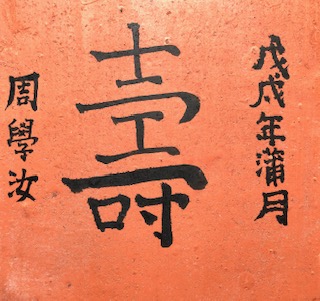 戊戌年蒲月
壽
周學汝